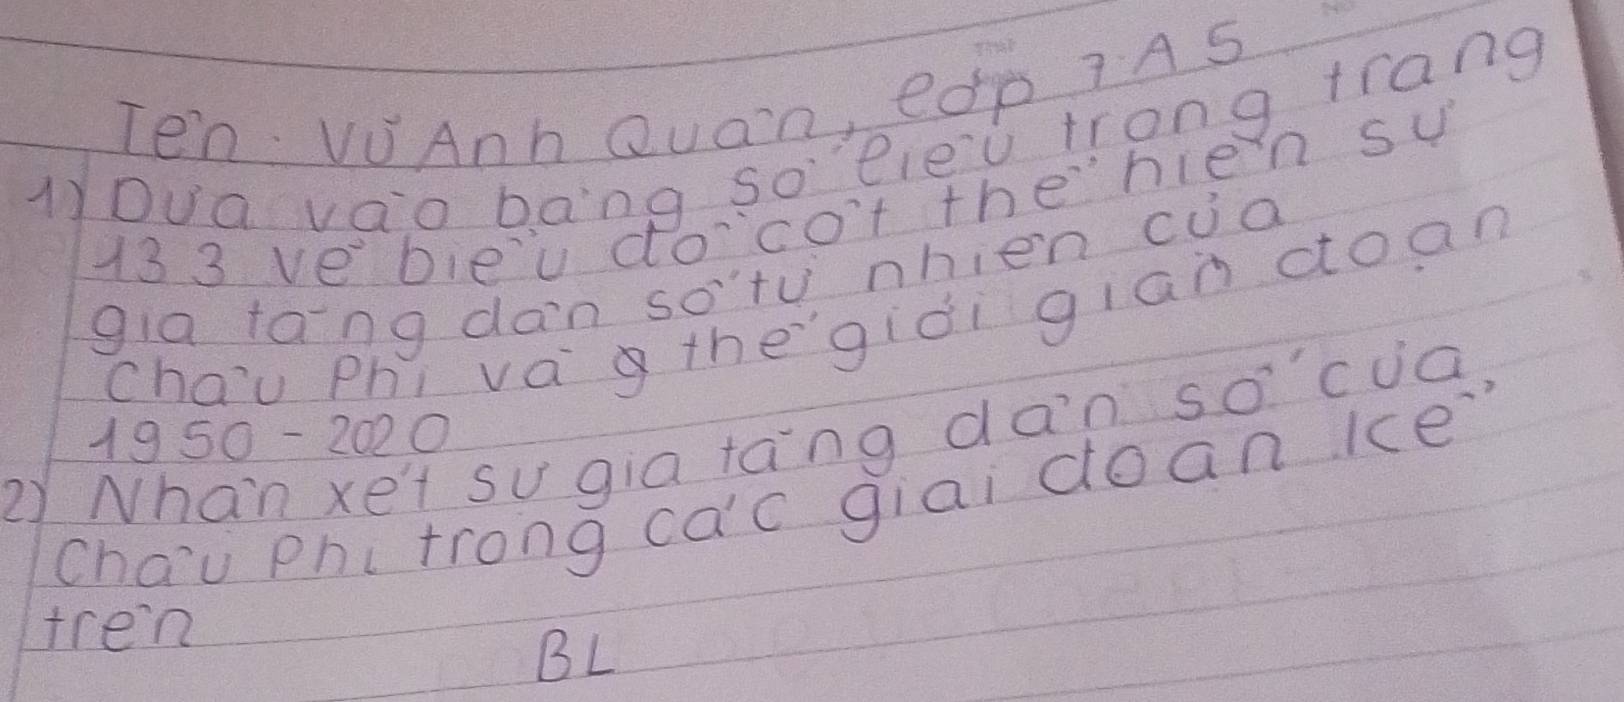 Tên: Vũ Anh Quân, lớp 7A5
1) Dựa vào bảng số liệu trong trang
133 vẽ biểu đồ cột thể hiện sự
gia tăng dân số tự nhiên của
châu Phi và thế giới gian đoạn
1950-2020
2) Nhận xét sự gia tăng dân số của
châu Phi trong các giai đoạn kể
trên
BL